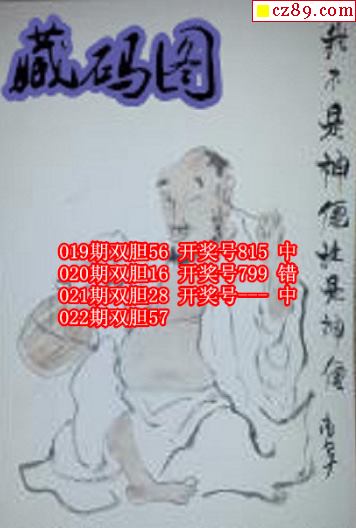 cz89.com
藏码图
我不是神僧壮是神僧
019期双胆56 开奖号815 中
020期双胆16 开奖号799 错
021期双胆28 开奖号--- 中
022期双胆57